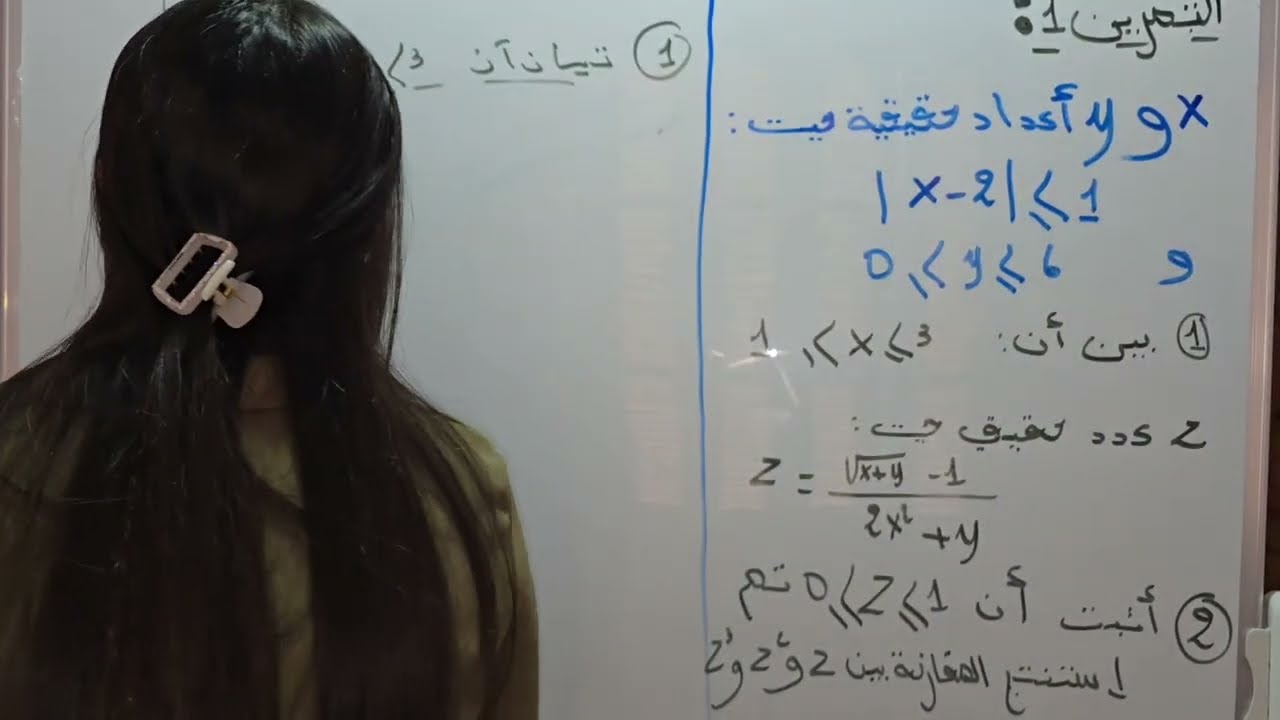 التمرين 1:
x و y أعداد حقيقية حيت:
|x-2| ⩽ 1
و 0 ⩽ y ⩽ 6
① بين أن: 1 ⩽ x ⩽ 3
z عدد حقيقي حيت:
z = (√(x+y) - 1) / (2x² + y)
② أثبت أن 0 ⩽ z ⩽ 1 تم
استنتج المقارنة بين z و z² و z³
① تبيان أن ⩽ 3